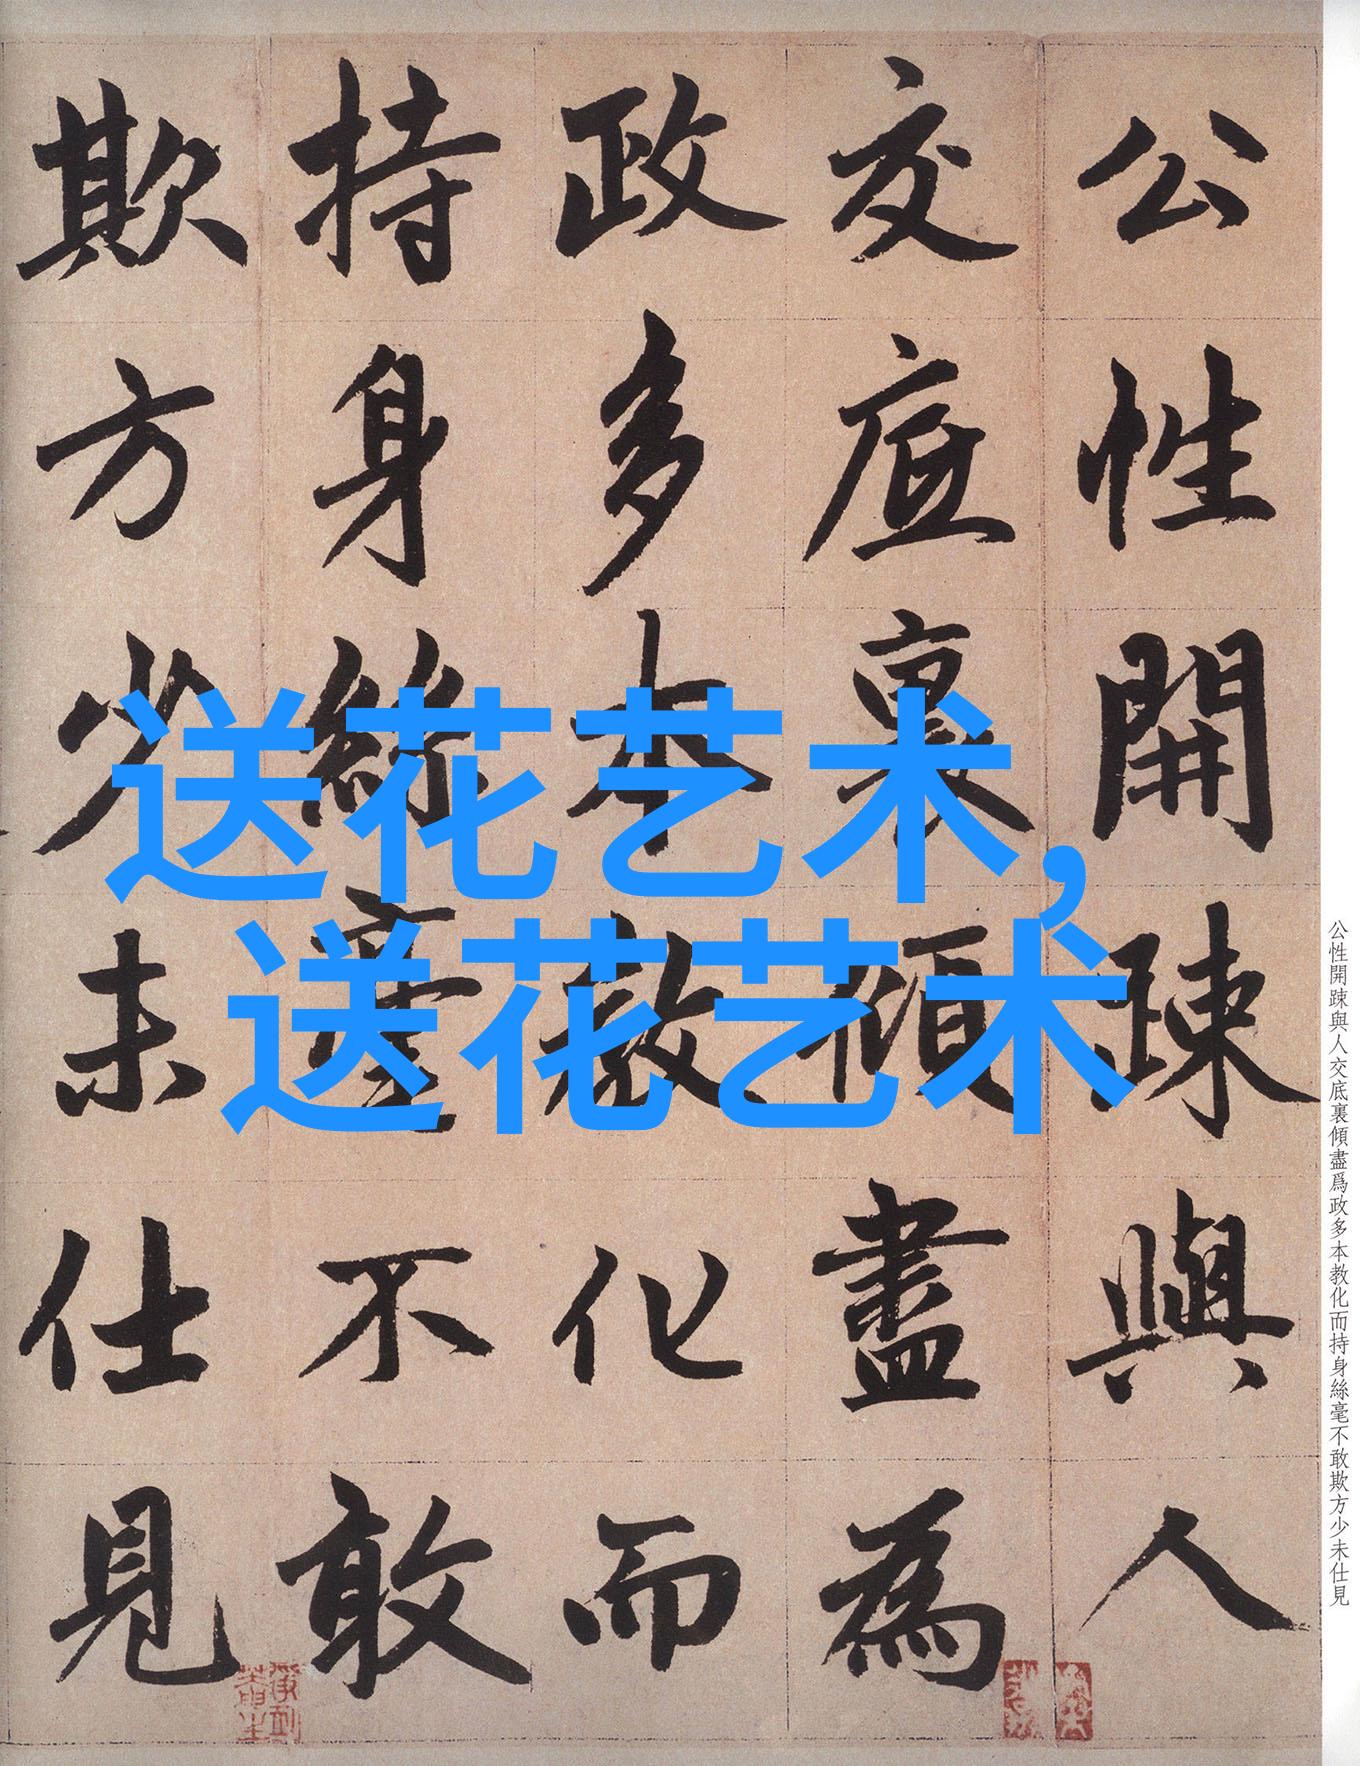 公性開踈與人
交底裏傾盡為
政多本教化而
持身絲毫不敢
欺方少未仕見
送花艺术,
送花艺术
公性開踈與人交底裏傾盡爲政多本教化而持身絲毫不敢欺方少未仕見